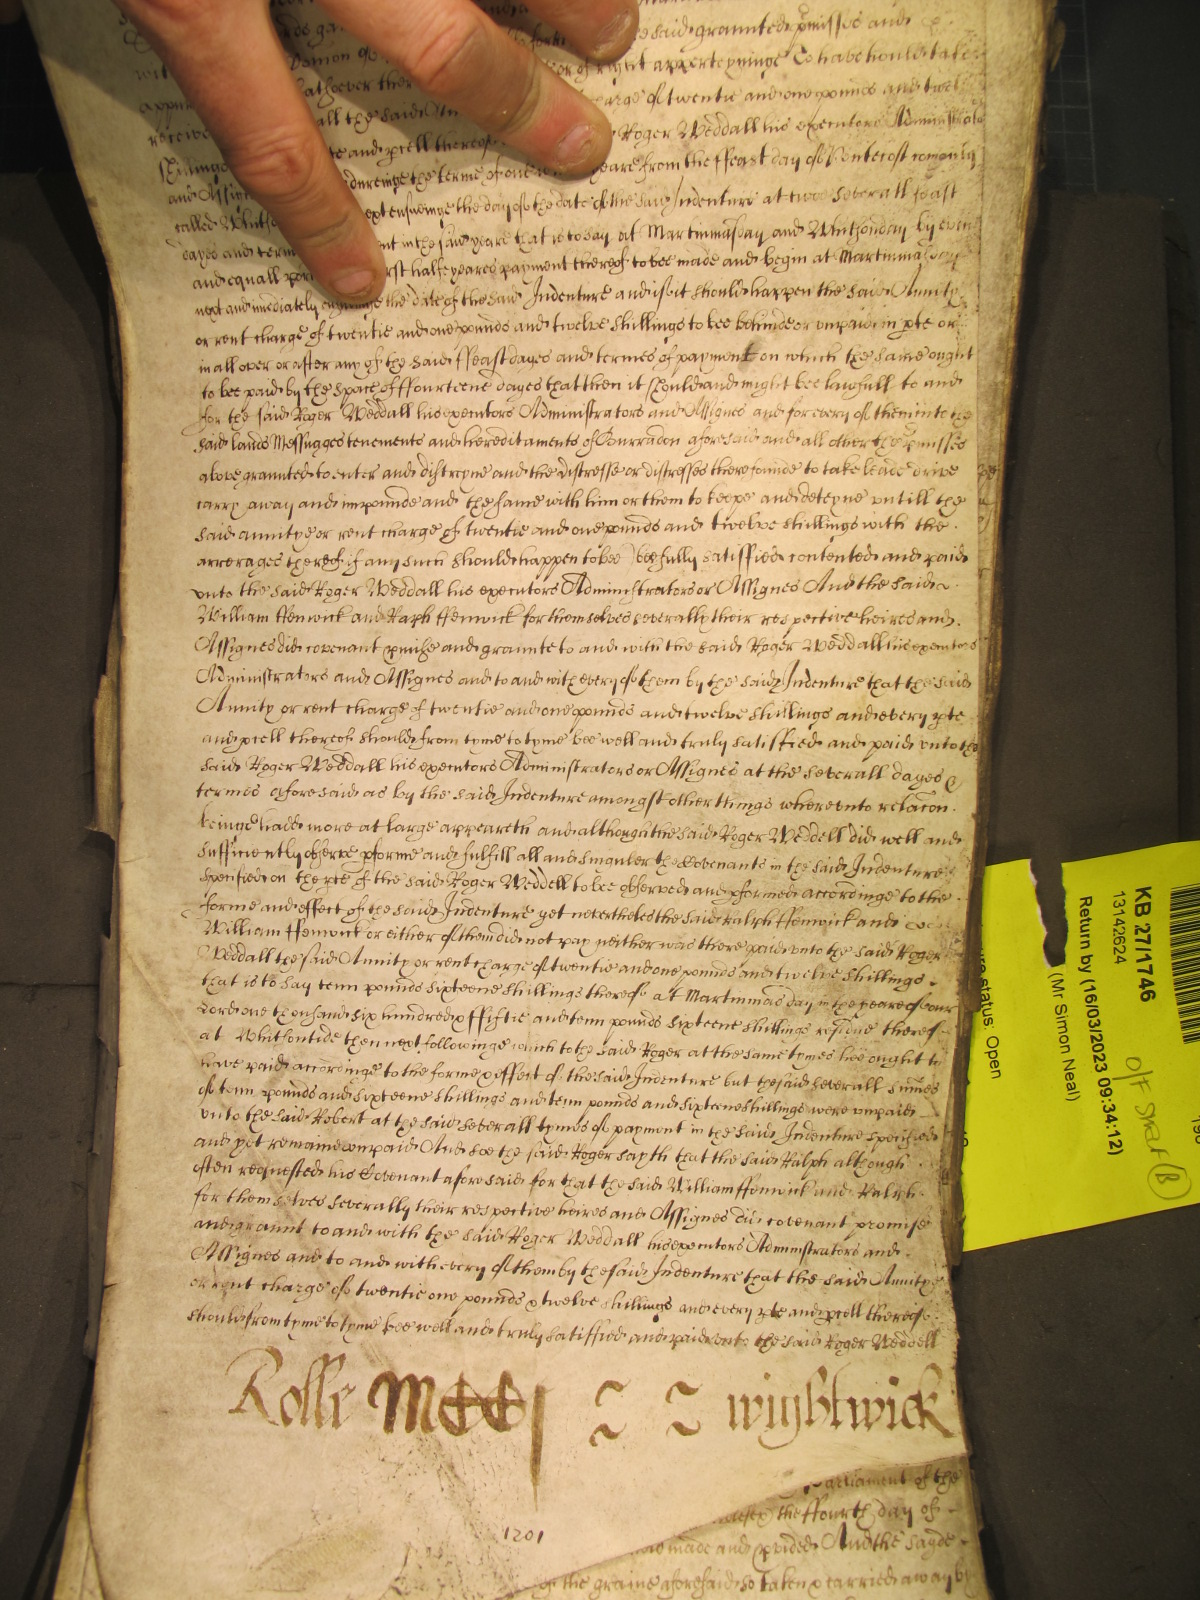 said granted pmisses and
of right apperteyninge To have hould take
receive all the said charge of twentie and one pounds and twelve
Shillings and pcell thereof Roger Weddall his executors Administrators
and Assignes dureinge the terme of one yeare from the ffeast day of Pentecost comonly
called next ensueinge the day of the date of the said Indenture at two severall feast
dayes and termes in the said yeare that is to say at Martinmasday and Whitsonday by even
and equall first halfe yeares payment thereof to bee made and begin at Martinmasday
next and imediately the date of the said Indenture and if it should happen the said Anuity
or rent charge of twentie and one pounds and twelve shillings to bee behinde or unpaid in pte or
in all over or after any of the said ffeast dayes and termes of payment on which the same ought
to bee paid by the space of ffourteene dayes that then it should and might bee lawfull to and
for the said Roger Weddall his executors Administrators and Assignes and for every of them into the
said lands Messuages tenements and hereditaments of Burradon aforesaid and all other the pmisses
above graunted to enter and distreyne and the distresse or distresses there founde to take leade drive
carry away and impounde and the same with him or them to keepe and deteyne untill the
said annitye or rent charge of twentie and one pounds and twelve shillings with the
arrerages thereof if any such should happen to bee bee fully satisfied contented and paid
unto the said Roger Weddall his executors Administrators or Assignes And the said
William ffenwick and Raph ffenwick for themselves severally their respective heires and
Assignes did covenant pmise and graunte to and with the said Roger Weddall his executors
Administrators and Assignes and to and with every of them by the said Indenture that the said
Anuity or rent charge of twentie and one pounds and twelve shillings and every pte
and pcell thereof should from tyme to tyme bee well and truly satisfied and paid unto the
said Roger Weddall his executors Administrators or Assignes at the severall dayes &
termes aforesaid as by the said Indenture amongst other things whereunto relacon
beinge had more at large appeareth and although the said Roger Weddell did well and
sufficiently observe pforme and fulfill all and singuler the Covenants in the said Indenture
specified on the pte of the said Roger Weddell to bee observed and pformed accordinge to the
forme and effect of the said Indenture yet neverthelesse the said Ralph ffenwick and
William ffenwick or either of them did not pay neither was there paid unto the said Roger
Weddall the said Anuity or rent charge of twentie and one pounds and twelve shillings
that is to say tenn pounds sixteene shillings thereof at Martinmas day in the yeare of our
Lord one thousand six hundred & ffiftie and tenn pounds sixteene shillings residue thereof
at Whitsontide then next followinge which to the said Roger at the same tymes hee ought to
have paid accordinge to the forme & effect of the said Indenture but the said severall sumes
of tenn pounds and sixteene shillings and tenn pounds and sixteene shillings were unpaid
unto the said Robert at the said severall tymes of payment in the said Indenture specified
and yet remaine unpaid And soe the said Roger sayth that the said Ralph although
often requested his Covenant aforesaid for that the said William ffenwick and Ralph
for themselves severally their respective heires and Assignes did covenant promise
and graunt to and with the said Roger Weddall his executors Administrators and
Assignes and to and with every of them by the said Indenture that the said Anuity
or rent charge of twentie one pounds & twelve shillings and every pte and pcell thereof
should from tyme to tyme bee well and truly satisfied and paid unto the said Roger Weddell
Rolle wightwick
1201
Parliament of the
the ffourth day of
made and pvided And the sayde
of the graine aforesaid so taken & carried away by
KB 27/1746
13142624
Return by (16/03/2023 09:34:12)
(Mr Simon Neal)
status: Open
O/F Straf (B)